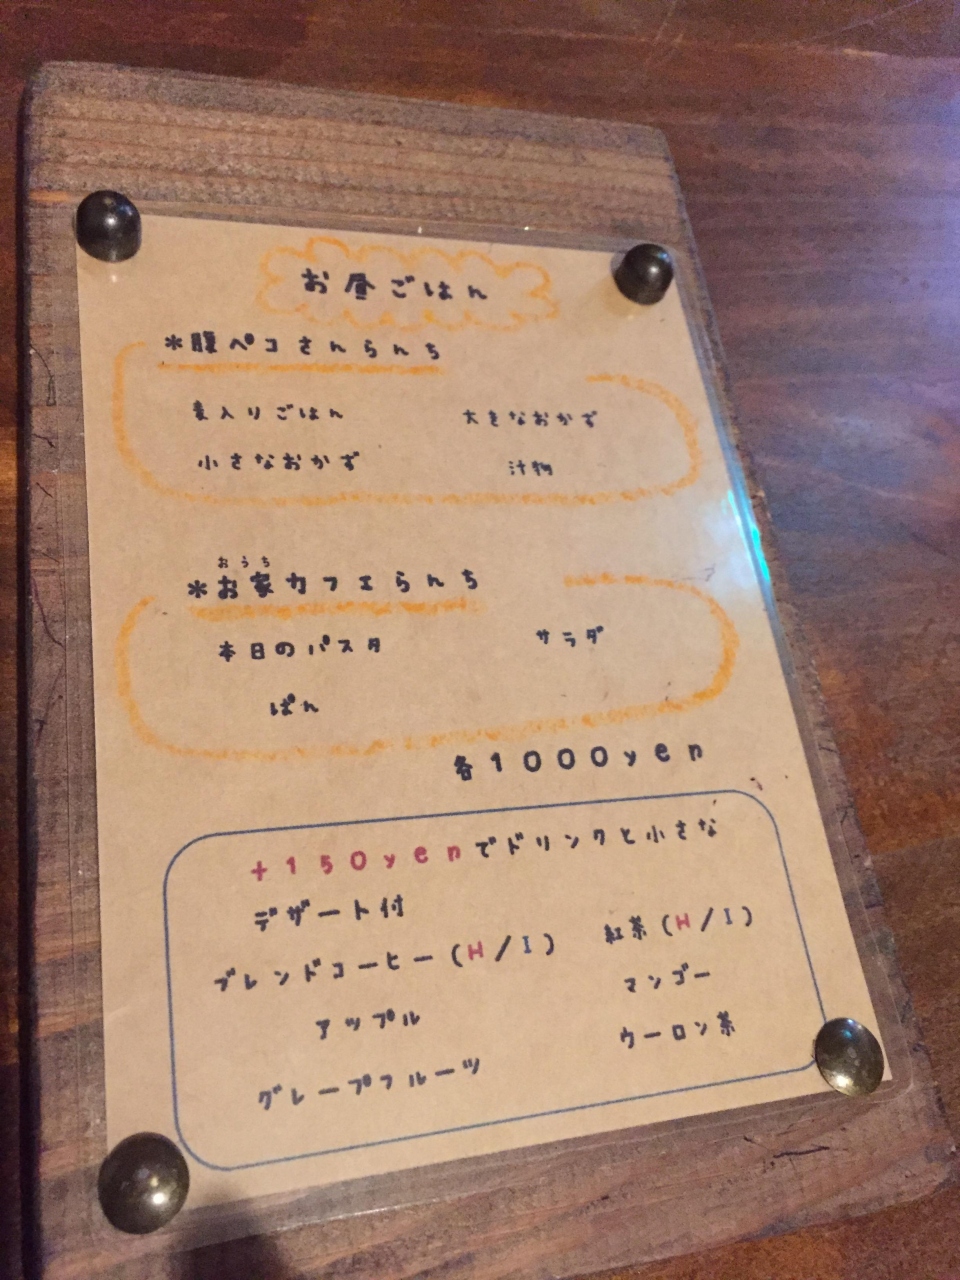 お昼ごはん
*腹ペコさんらんち
麦入りごはん 大きなおかず
小さなおかず 汁物
おうち
*お家カフェらんち
本日のパスタ サラダ
ぱん
各1000yen
+150yenでドリンクと小さな
デザート付
ブレンドコーヒー(H/I) 紅茶(H/I)
アップル マンゴー
グレープフルーツ ウーロン茶